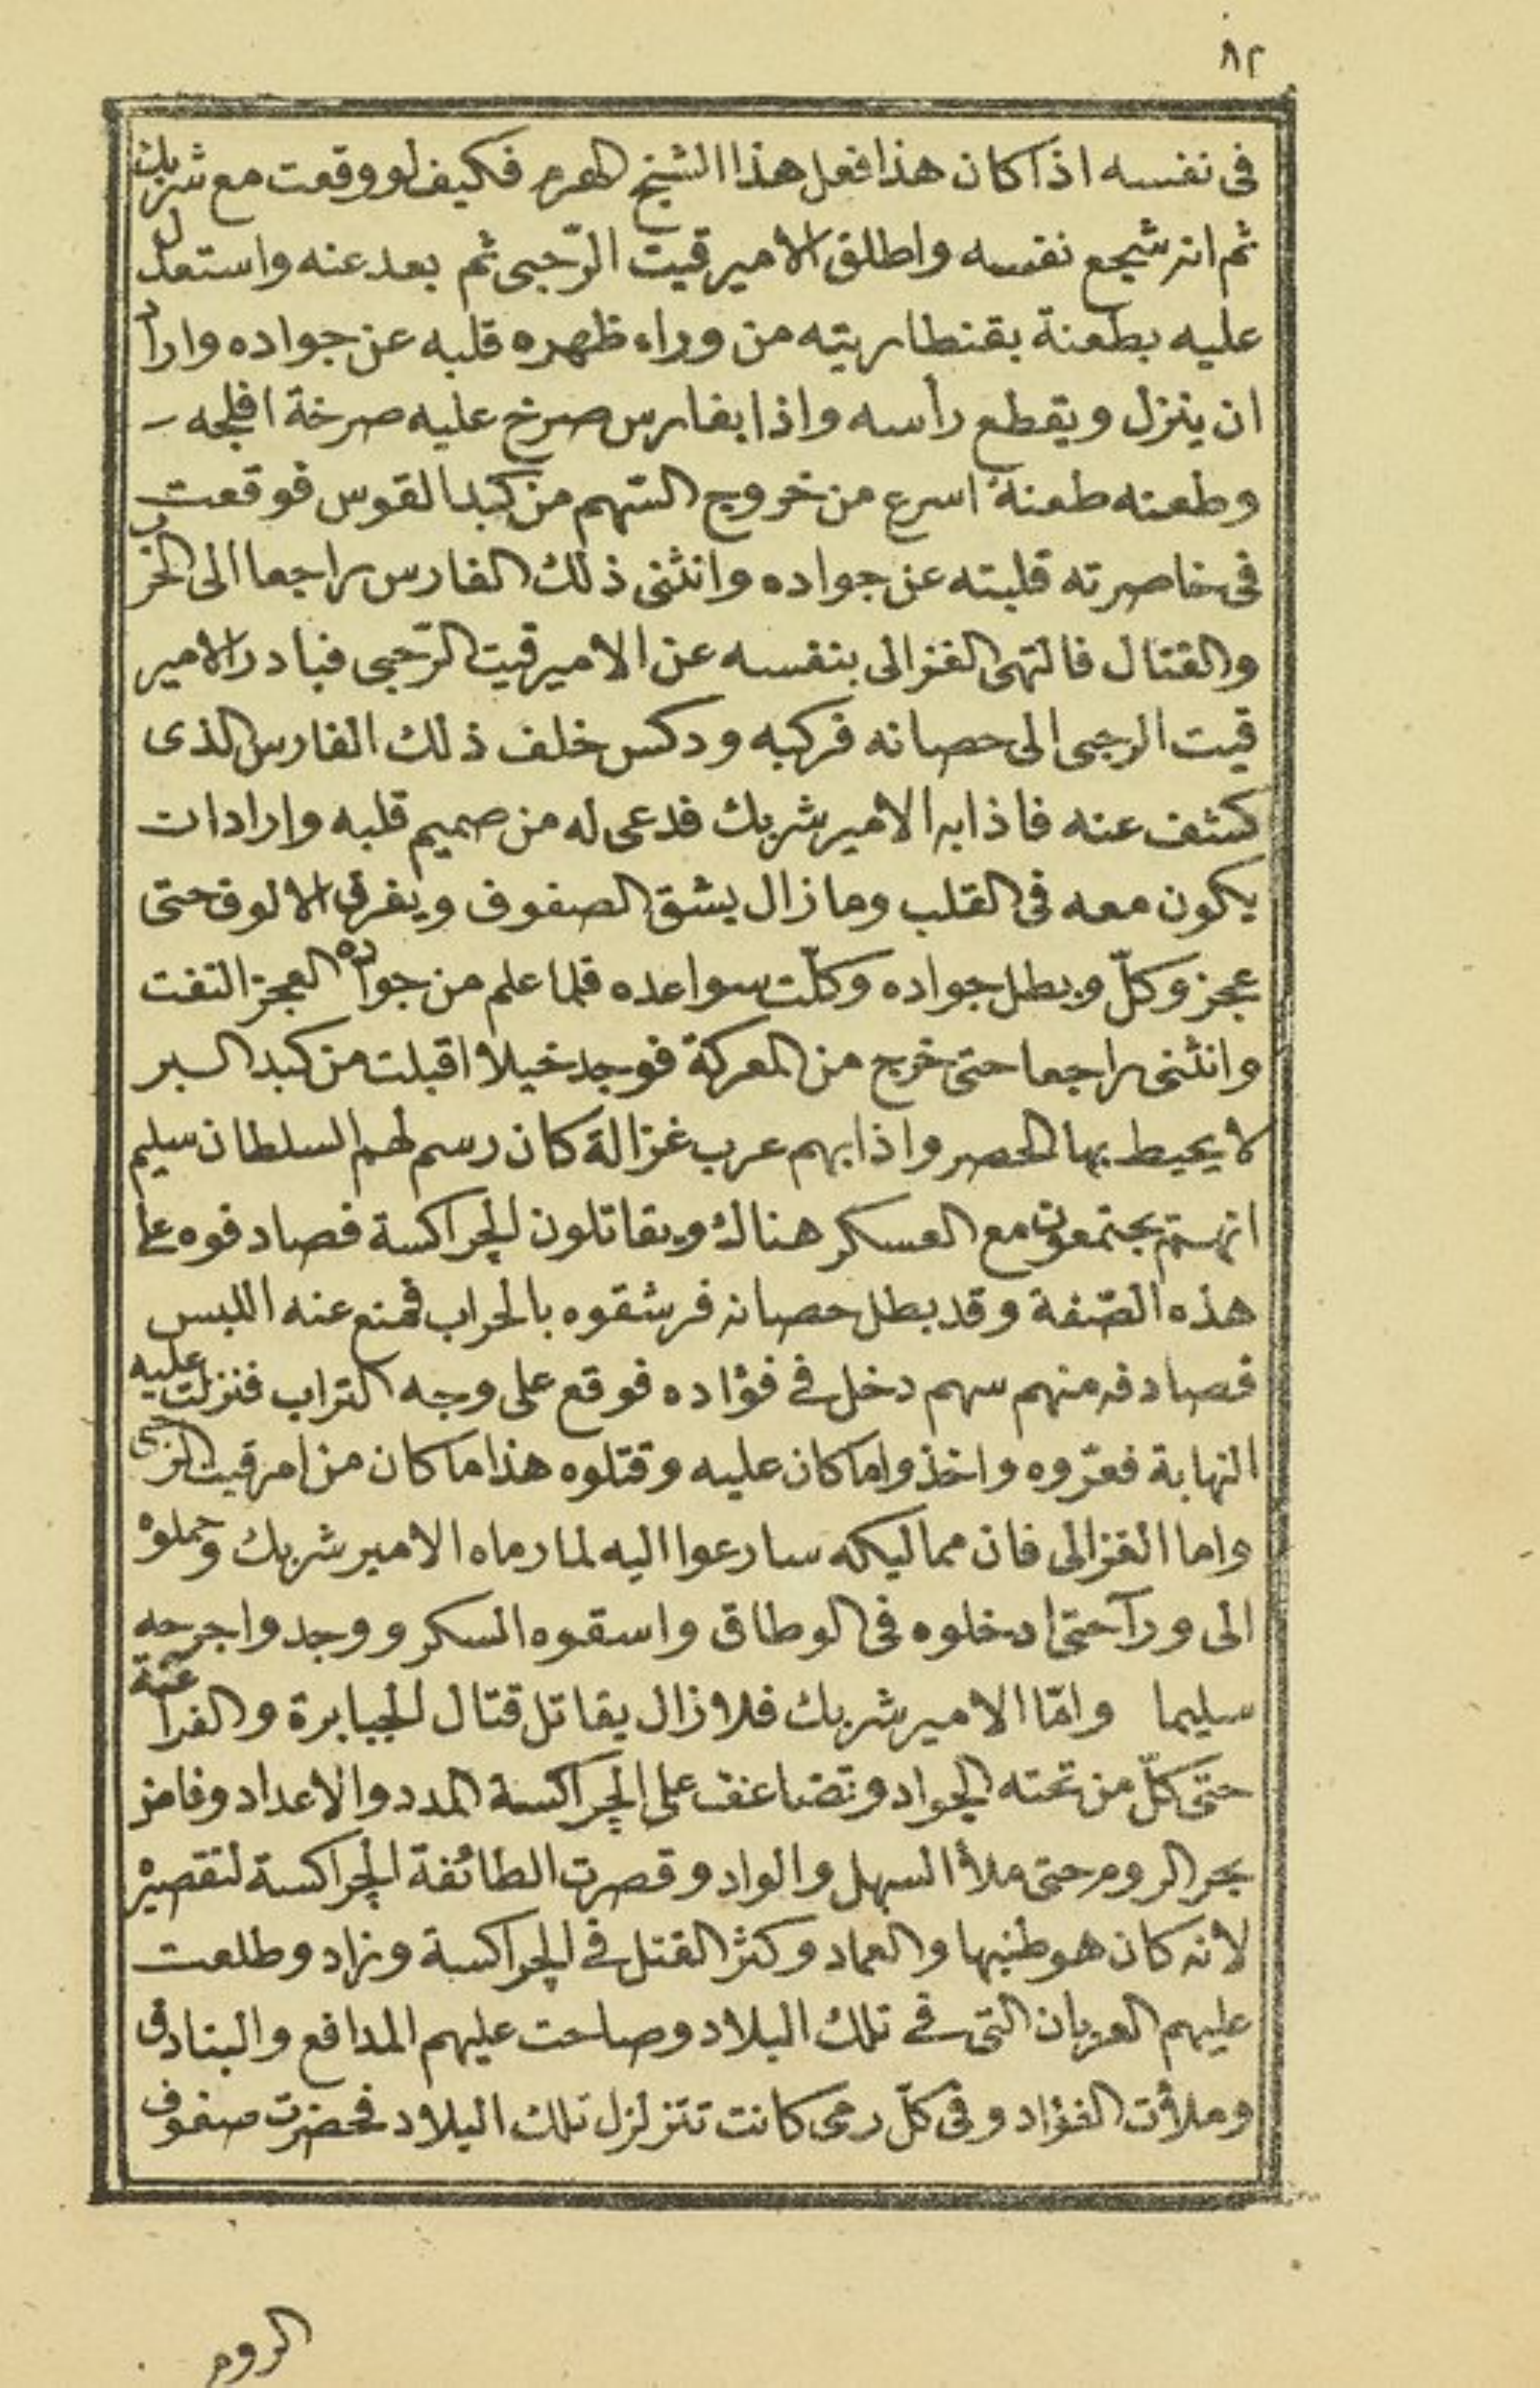 ٨٢
فى نفسه اذا كان هذا فعل هذا الشيخ الهرم فكيف لو وقعت مع شربك
ثم انه شجع نفسه واطلق الامير قيت الرّجبى ثم بعد عنه واستعدل
عليه بطعنة بقنطاريته من وراء ظهره قلبه عن جواده واراد
ان ينزل ويقطع رأسه واذا بفارس صرخ عليه صرخة افلجه
وطعنه طعنة اسرع من خروج السّهم من كبد القوس فوقعت
فى خاصرته قلبته عن جواده وانثنى ذلك الفارس راجعا الى الحرب
والقتال فالتهى الغزالى بنفسه عن الامير قيت الرّجبى فبادر الامير
قيت الرجبى الى حصانه فركبه ودكس خلف ذلك الفارس الذى
كشف عنه فاذا به الامير شربك فدعى له من صميم قلبه واراد ان
يكون معه فى القلب وما زال يشق الصفوف ويفرق الالوف حتى
عجز وكلّ وبطل جواده وكلّت سواعده فلما علم من جواده العجز التفت
وانثنى راجعا حتى خرج من المعركة فوجد خيلا اقبلت من كبد البر
لا يحيط بها الحصر واذا بهم عرب غزالة كان رسم لهم السلطان سليم
انهم يجتمعون مع العسكر هناك ويقاتلون الچراكسة فصادفوه على
هذه الصّفة وقد بطل حصانه فرشقوه بالحراب فمنع عنه اللبس
فصادفه منهم سهم دخل فى فؤاده فوقع على وجه التراب فنزلت عليه
النهابة فعرّوه واخذوا ما كان عليه وقتلوه هذا ما كان من امر قيت الرجبى
واما الغزالى فان مماليكه سارعوا اليه لما رماه الامير شربك وحملوه
الى ورآ حتى ادخلوه فى الوطاق واسقوه السكر ووجدوا جرحه
سليما وامّا الامير شربك فلا زال يقاتل قتال الجبابرة والفراعنة
حتى كلّ من تحته الجواد وتضاعف على الچراكسة المدد والاعداد وفاض
بحر الروم حتى ملأ السهل والواد وقصرت الطائفة الچراكسة لتقصيره
لانه كان هو طنبها والعماد وكثر القتل فى الچراكسة وزاد وطلعت
عليهم العربان التى فى تلك البلاد وصاحت عليهم المدافع والبنادق
وملأت الفؤاد وفى كلّ رمى كانت تتزلزل تلك البلاد فحضرت صفوف
الروم